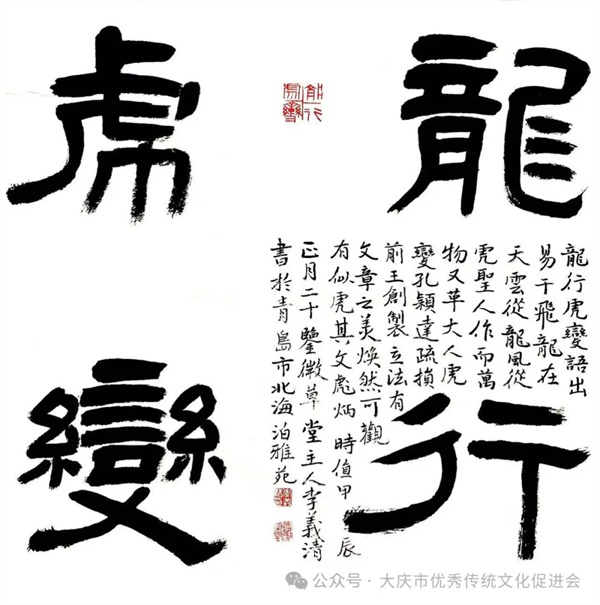 龍行
虎變
龍行虎變語出
易干飛龍在
天雲從龍風從
虎聖人作而萬
物又革大人虎
變孔穎達疏損
前王創製立法有
文章之美煥然可觀
有似虎其文彪炳 時值甲辰
正月二十鑒微草堂主人李義清
書於青島市北海泊雅苑
公众号 · 大庆市优秀传统文化促进会